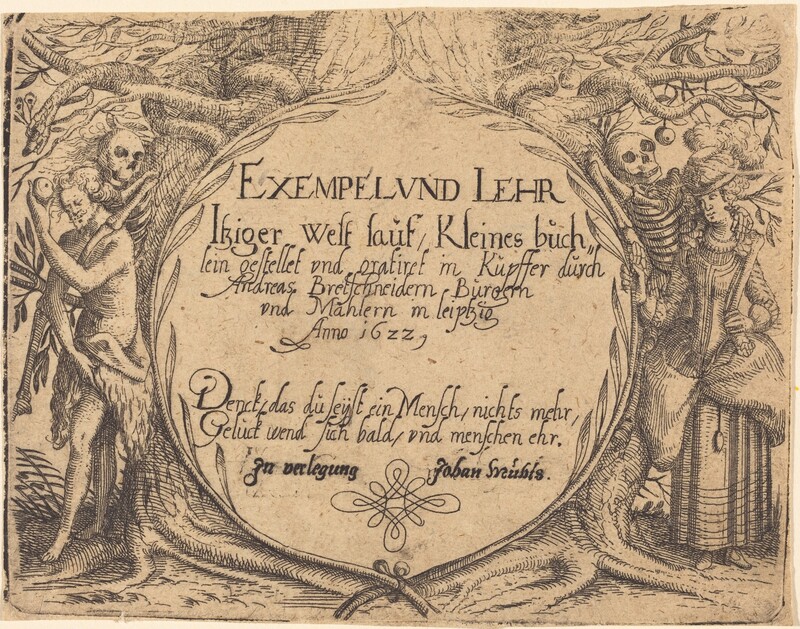 EXEMPEL VND LEHR
Itziger welt lauf, Kleines buch„
lein gestellet vnd gratiret in Kupffer durch
Andreas Bretschneidern Bürgern
vnd Mahlern in leiptzig
Anno 1622,
Denck, das du seÿst ein Mensch, nichts mehr,
Gelück wend sich bald, vnd menschen ehr.
In verlegung Johan